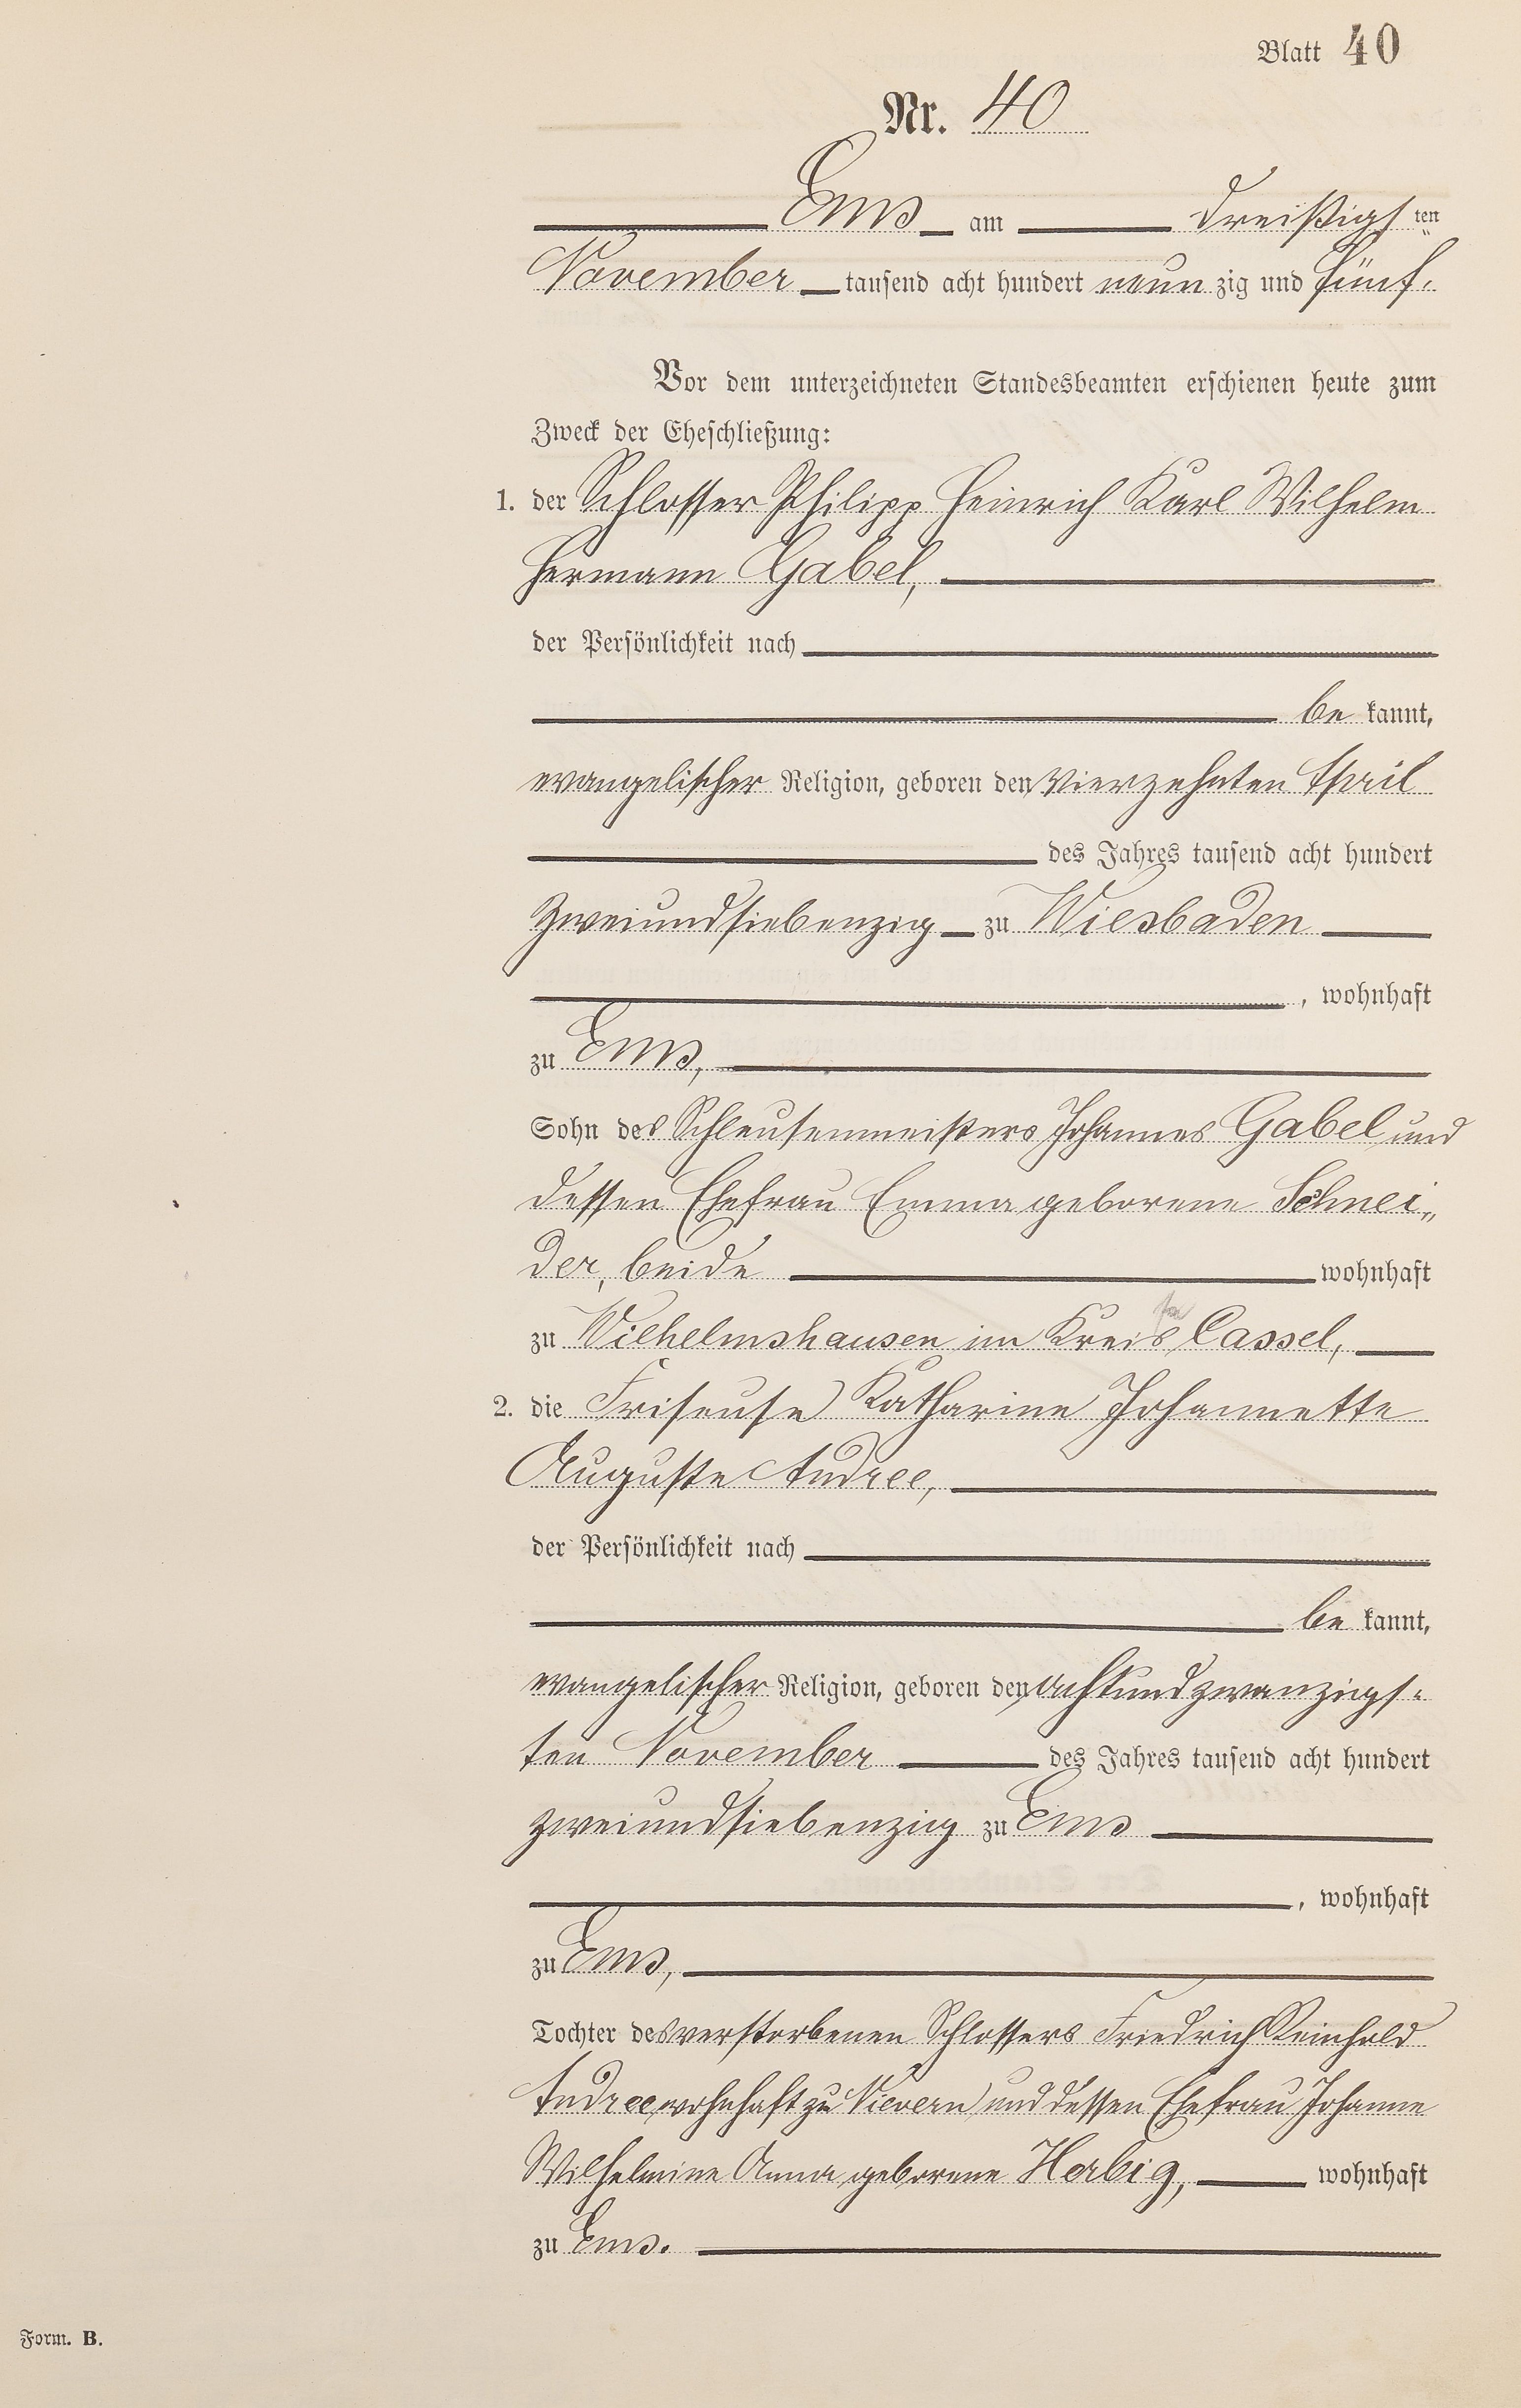 Blatt 40
Nr. 40
Ems am dreißigsten
November tausend acht hundert neunzig und fünf.
Vor dem unterzeichneten Standesbeamten erschienen heute zum
Zweck der Eheschließung:
1. der Schlosser Philipp Heinrich Karl Wilhelm
Hermann Gabel,
der Persönlichkeit nach
be kannt,
evangelischer Religion, geboren den vierzehnten April
des Jahres tausend acht hundert
zweiundsiebenzig zu Wiesbaden
, wohnhaft
zu Ems,
Sohn des Schleusenmeisters Johannes Gabel und
dessen Ehefrau Emma geborene Schnei„
der, beide wohnhaft
zu Wilhelmshausen im Kreis Cassel,
2. die Friseuse Katharine Johannette
Auguste Andree,
der Persönlichkeit nach
be kannt,
evangelischer Religion, geboren den achtundzwanzigs-
ten November des Jahres tausend acht hundert
zweiundsiebenzig zu Ems
, wohnhaft
zu Ems,
Tochter des verstorbenen Schlossers Friedrich Reinhold
Andree wohnhaft zu Nievern und dessen Ehefrau Johanne
Wilhelmine Anna geborene Herbig, wohnhaft
zu Ems.
Form. B.